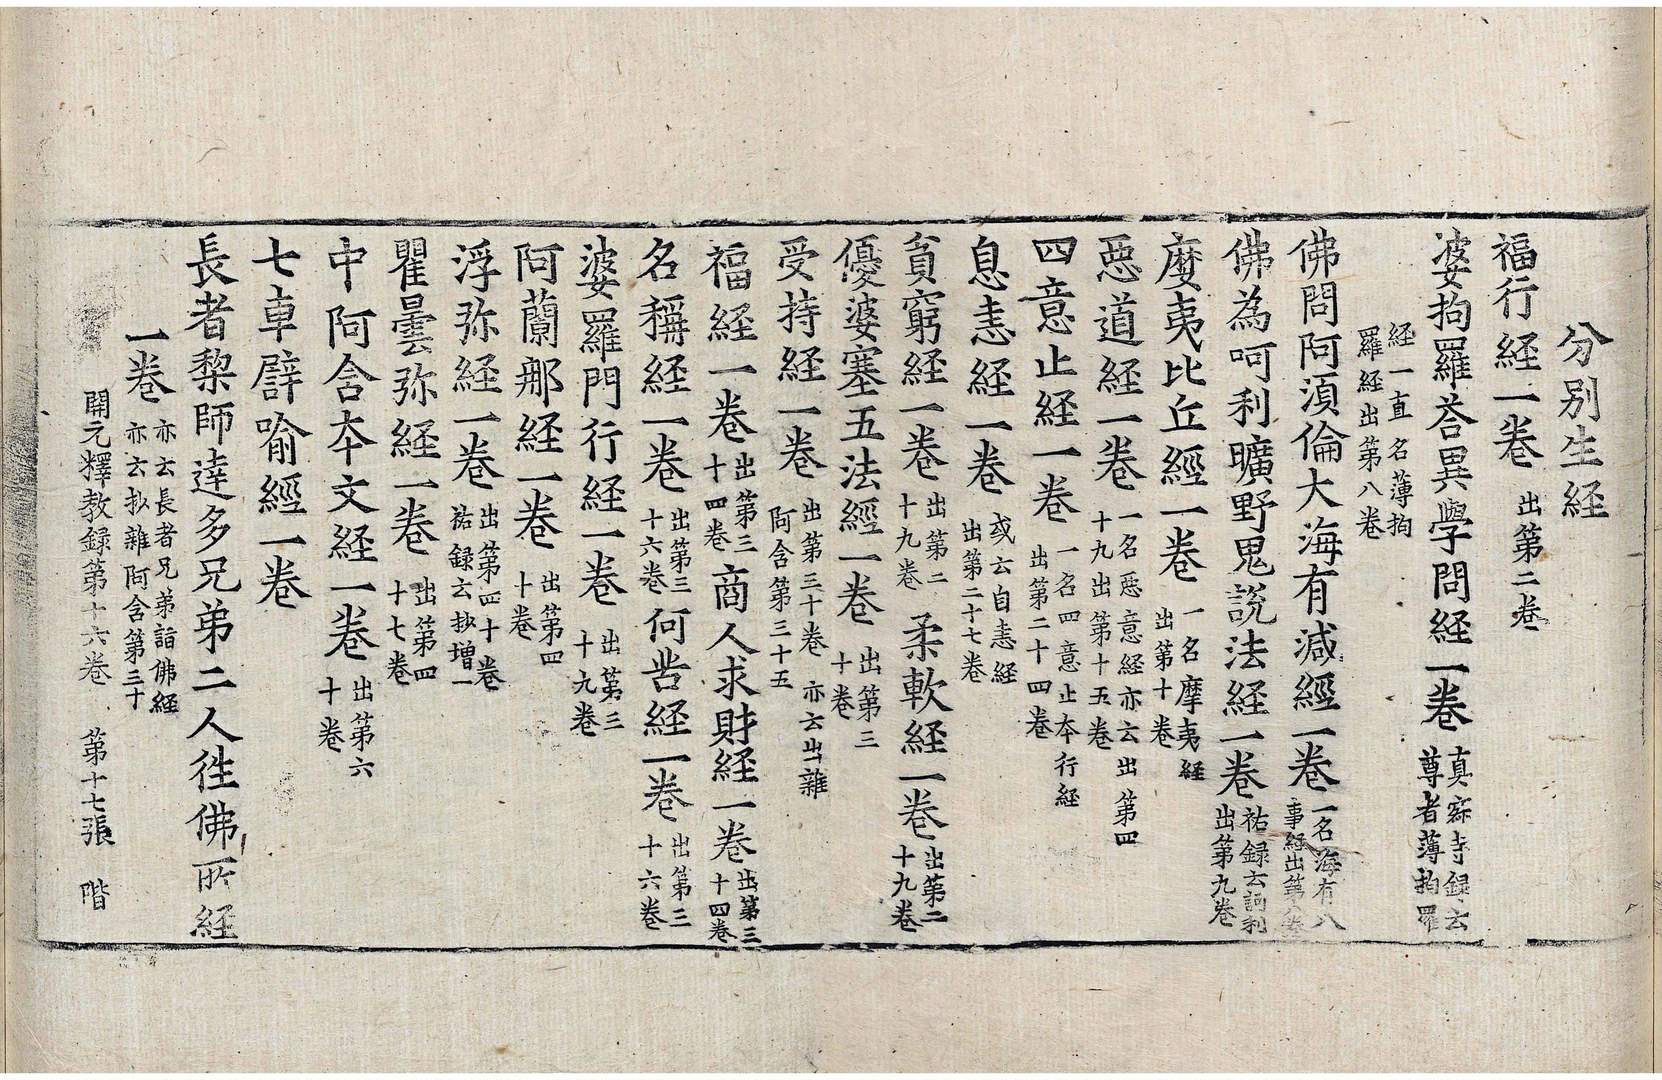 分别生経
福行経一卷 出第二卷
婆拘羅荅異學問経一卷 真寂寺録云尊者薄拘羅
経一直名薄拘羅経出第八卷
佛問阿湏倫大海有減經一卷 一名海有八事経出第卷
佛為呵利曠野鬼説法経一卷 祐録云訶利出第九卷
麼夷比丘經一卷 一名摩夷経出第十卷
惡道経一卷 一名惡意経亦云出第四十九出第十五卷
四意止経一卷 一名四意止本行経出第二十四卷
息恚経一卷 或云自恚経出第二十七卷
貧窮経一卷 出第二十九卷 柔軟経一卷 出第二十九卷
優婆塞五法經一卷 出第三十卷
受持経一卷 出第三十卷亦云出雜阿含第三十五
福経一卷 出第三十四卷 商人求財経一卷 出第三十四卷
名稱経一卷 出第三十六卷 何苦経一卷 出第三十六卷
婆羅門行経一卷 出第三十九卷
阿蘭那経一卷 出第四十卷
浮弥経一卷 出第四十卷祐録云抄增一
瞿曇弥経一卷 出第四十七卷
中阿含本文經一卷 出第六十卷
七車譬喻經一卷
長者梨師逹多兄弟二人徃佛所経
一卷 亦云長者兄弟詣佛經亦云抄雜阿含第三十
開元釋教録第十六卷 第十七張 階